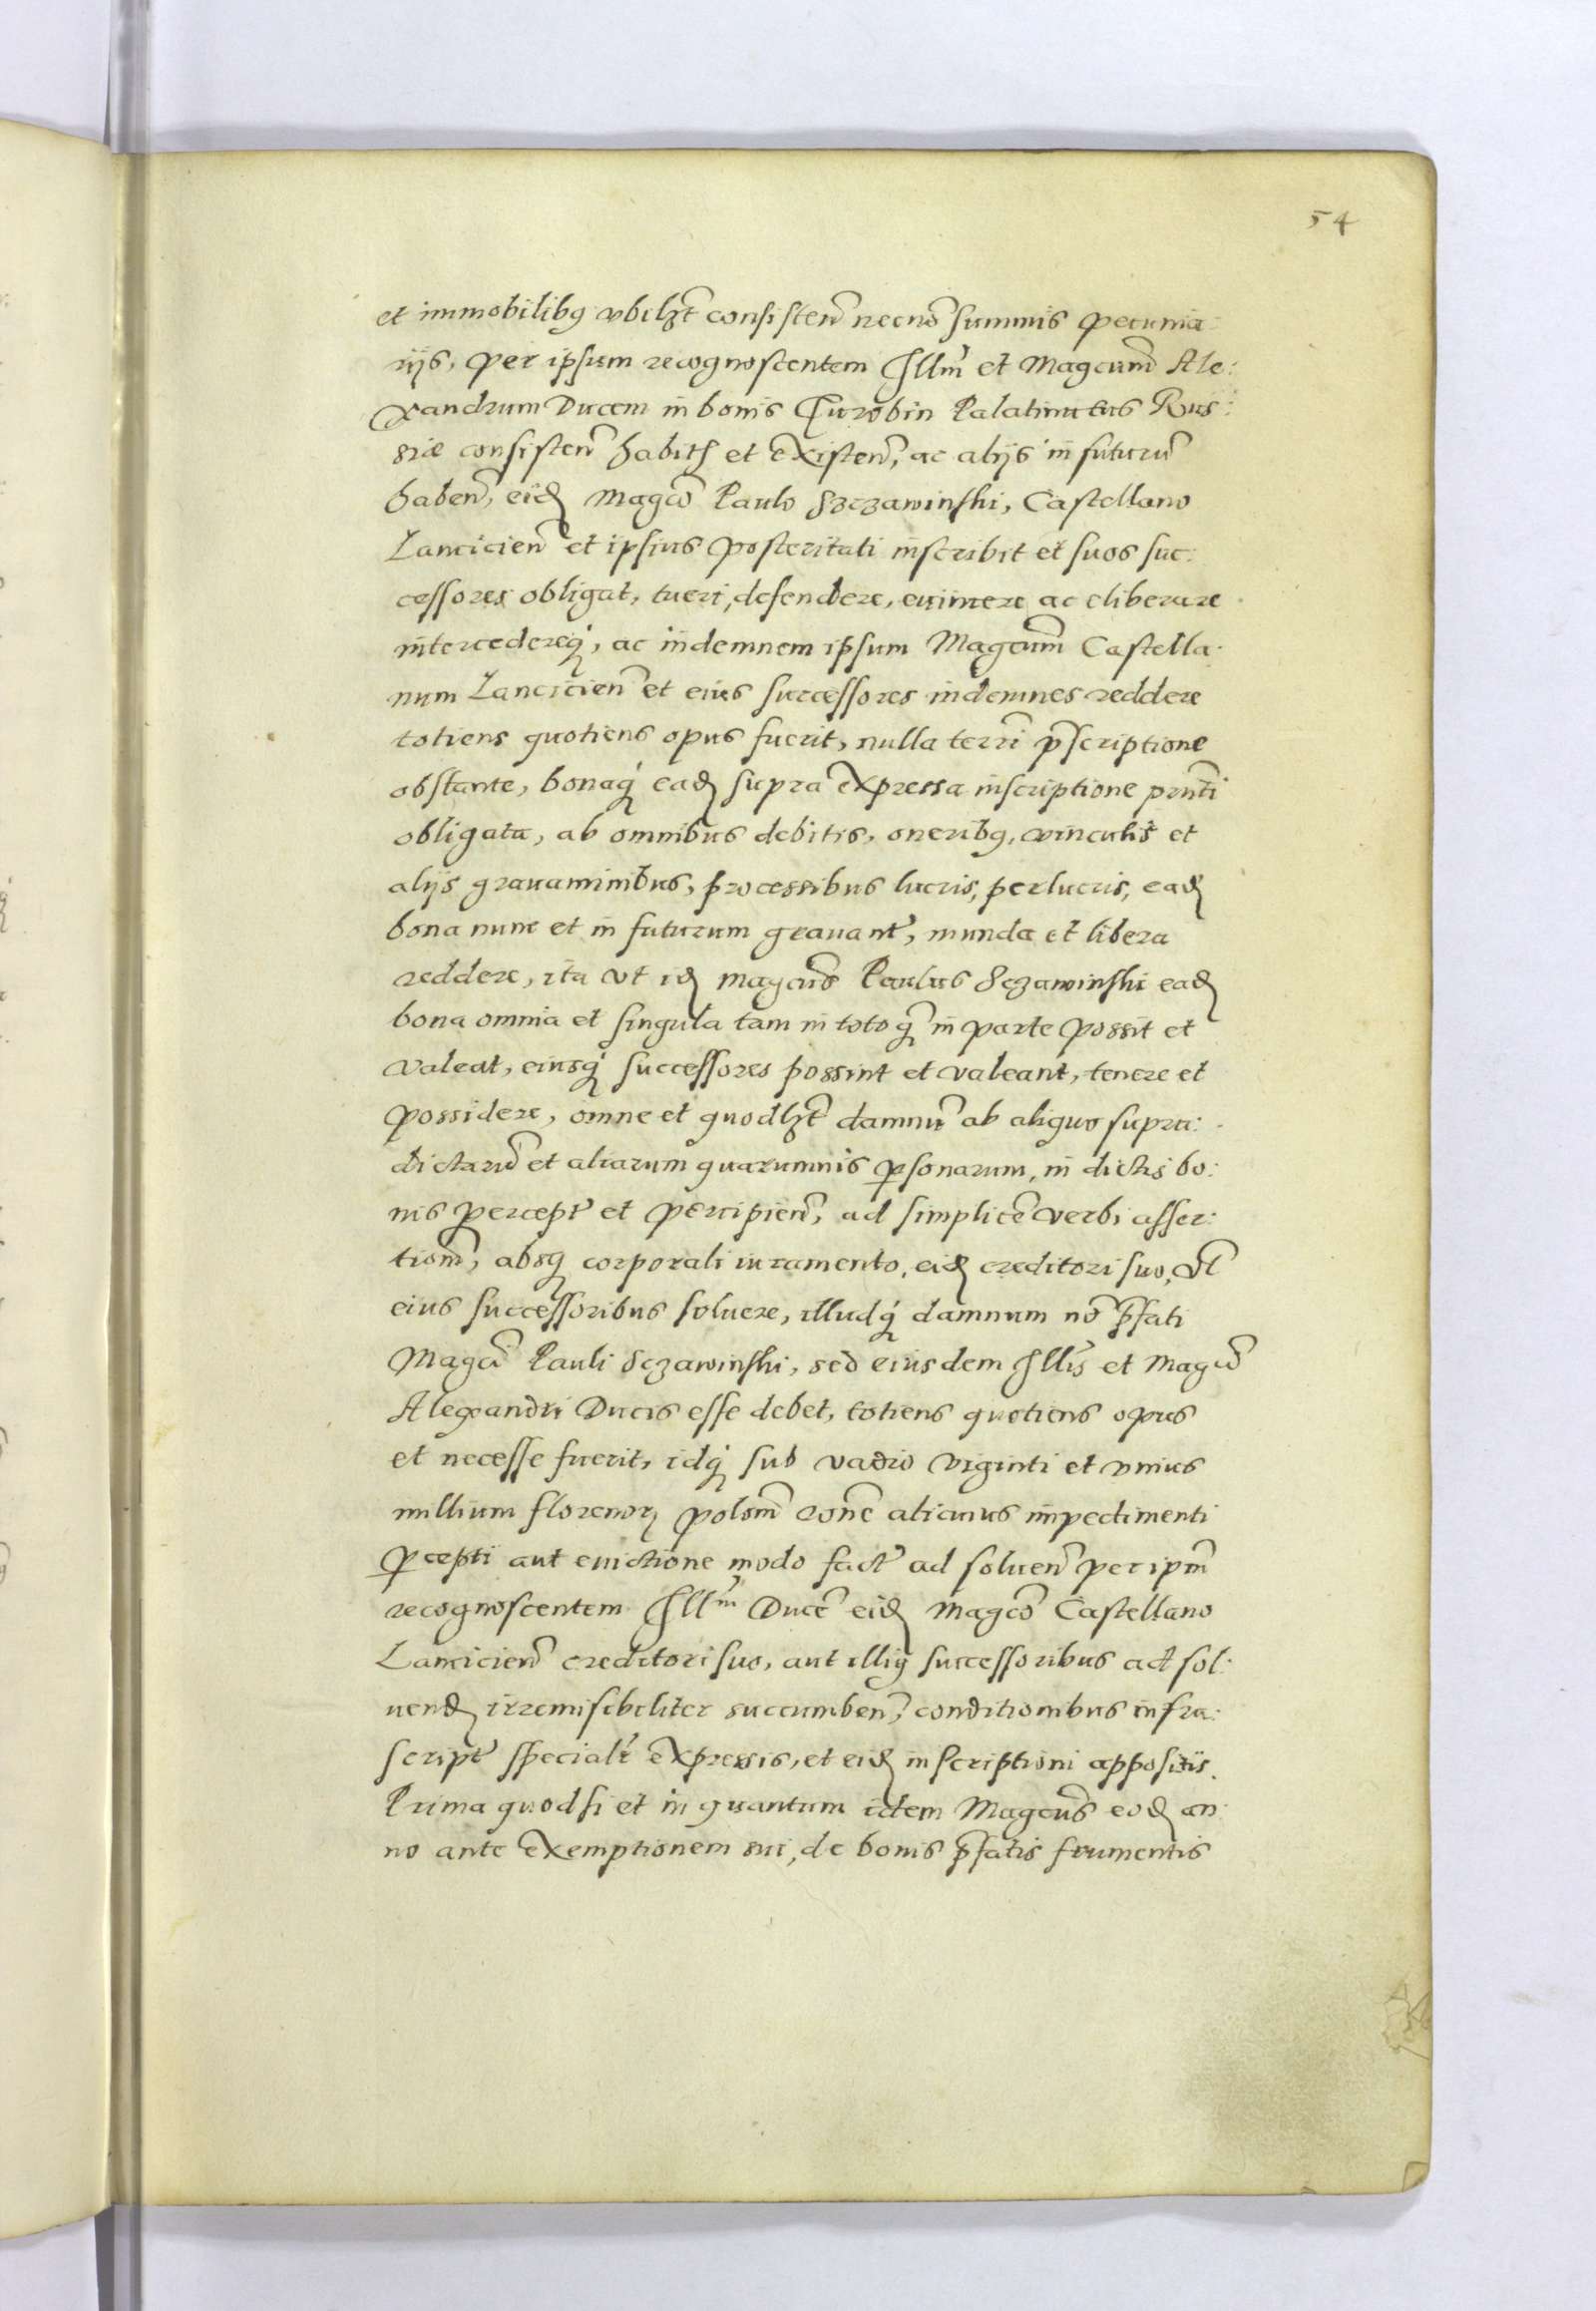 54
et immobilibꝯ vbilꝫt consisten̄ necnō summis pecunia:
rijs, per ipsum recognoscentem Illm̄ et Magcum̄ Ale:
xandrum Ducem in bonis Turobin Palatinatus Rus:
siæ consisten̄ habitꝭ et existen̄, ac alijs in futurū
haben̄, eidꝫ Magcō Paulo Szczawinski, Castellano
Lancicien̄ et ipsius posteritati inscribit et suos suc:
cessores obligat, tueri, defendere, euincere ac eliberare
intercedereqꝫ, ac indemnem ipsum Magcum̄ Castella:
num Lancicien̄ et eius successores indemnes reddere
totiens quotiens opus fuerit, nulla terrī p̄scriptione
obstante, bonaqꝫ eadꝫ supra expressa inscriptione pn̄ti
obligata, ab omnibus debitis, oneribꝯ, vinculis et
alijs grauaminibus, processibus lucris, perlucris, eadꝫ
bona nunc et in futurum grauant̄, munda et libera
reddere, ita vt idꝫ Magcus̄ Paulus Sczawinski eadꝫ
bona omnia et singula tam in toto qꝫ in parte possit et
valeat, eiusqꝫ successores possint et valeant, tenere et
possidere, omne et quodlꝫt damnū ab aliquo supra:
dictarū et aliarum quarumuis ꝑsonarum, in dictis bo:
nis percept̄ et percipien̄, ad simplicē verbi asser:
tionē, absqꝫ corporali iuramento, eidꝫ creditori suo, vl̄
eius successoribus soluere, illudqꝫ damnum nō p̄fati
Magcī Pauli Sczawinski, sed eiusdem Illis̄ et Magcī
Alexandri Ducis esse debet, totiens quotiens opus
et necesse fuerit, idqꝫ sub vadio viginti et vnius
millium florenorꝫ polon̄ rōne alicuius impedimenti
ꝑcepti aut euictione modo fact̄ ad soluen̄ per ipm̄
recognoscentem Illm̄ Ducē eidꝫ Magcō Castellano
Lancicien̄ creditori suo, aut illiꝯ successoribus ad sol:
uendꝫ irremisibiliter succumben̄, conditionibus infra:
script̄ specialr̄ expressis, et eidꝫ inscriptioni appositis.
Prima quod si et in quantum idem Magcus̄ eodꝫ an:
no ante exemptionem sui, de bonis p̄fatis frumentis